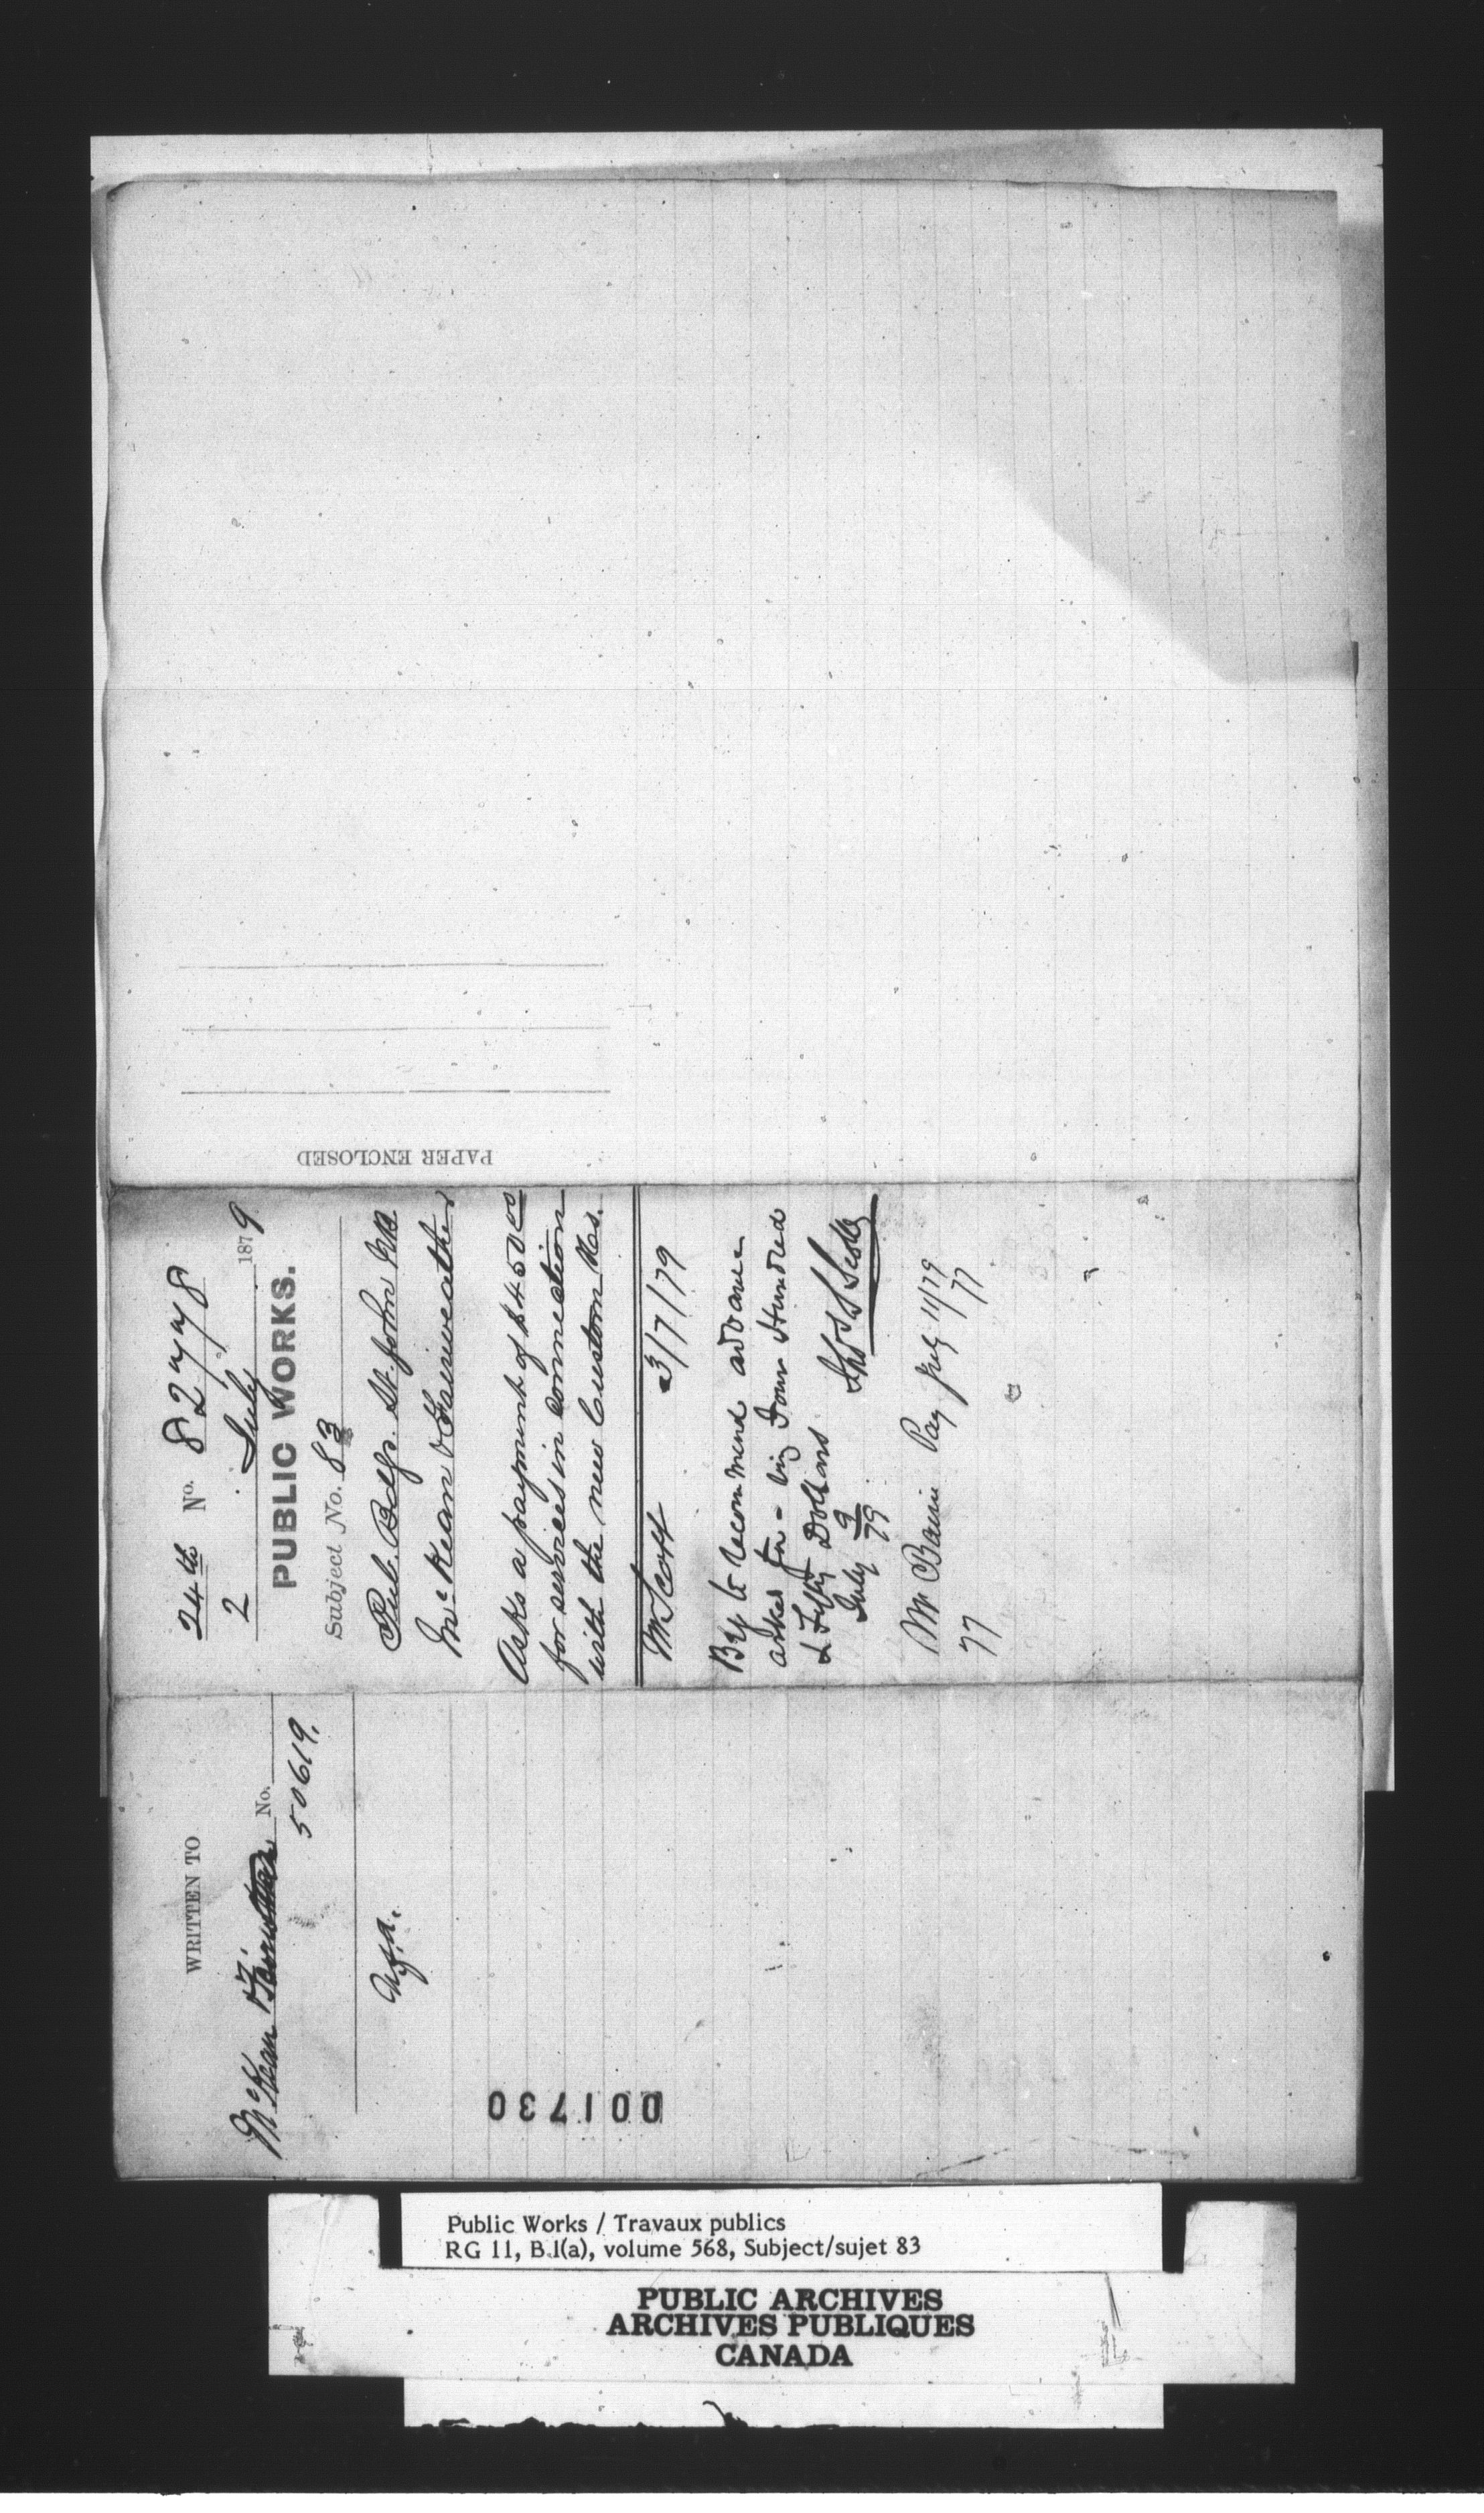 PAPER ENCLOSED
24th No. 82778
2 July 1879
PUBLIC WORKS.
Subject No. 83
Pub. Bdgs. St. John N.B
McKean & Fairweather
Asks a payment of $450.00
for services in connection
with the new Custom Hos.
Mr Scott 3/7/79
Beg to recommend advance
asked for - viz Four Hundred
& Fifty Dollars
July 9/79 Thos S Scott
Mr Baine Pay July 11/79
WRITTEN TO
McKean & Fairweather No.
50619.
001730
Public Works / Travaux publics
RG 11, B.1(a), volume 568, Subject/sujet 83
PUBLIC ARCHIVES
ARCHIVES PUBLIQUES
CANADA